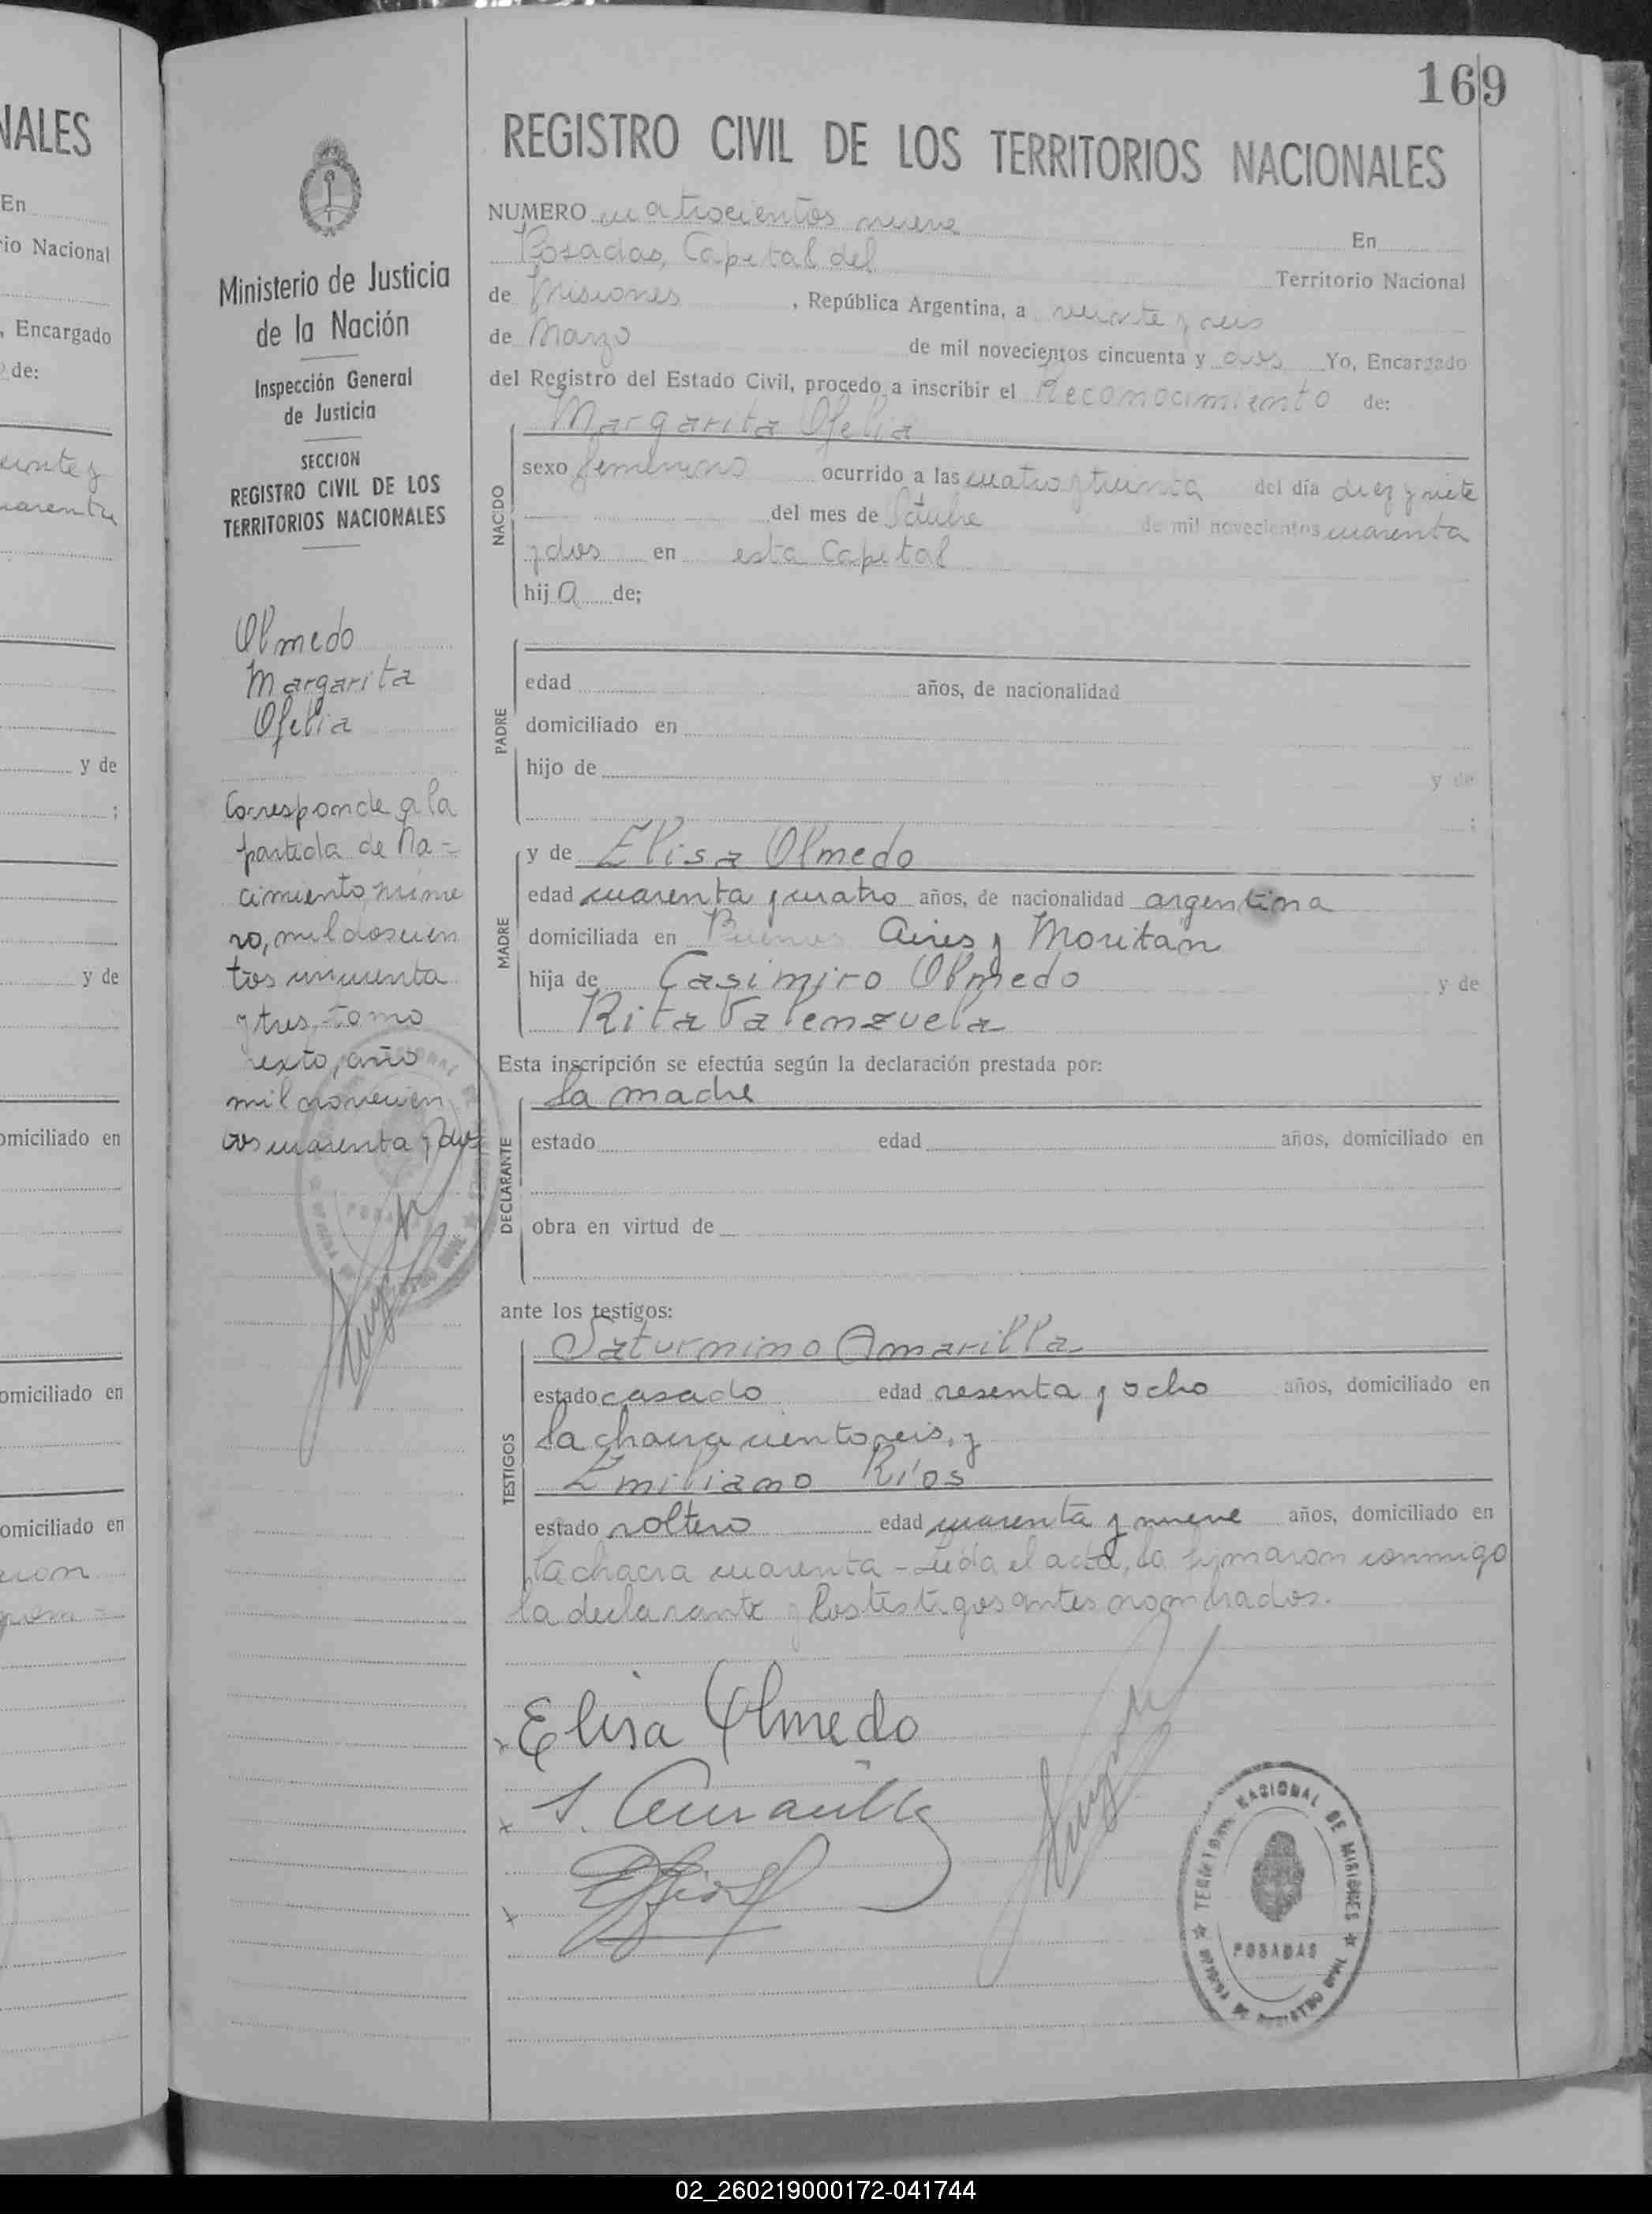 NALES
En
rio Nacional
, Encargado
de:
y de
;
y de
omiciliado en
omiciliado en
omiciliado en
169
Ministerio de Justicia
de la Nación
Inspección General
de Justicia
SECCION
REGISTRO CIVIL DE LOS
TERRITORIOS NACIONALES
Olmedo
Margarita
Ofelia
Corresponde a la
partida de Na-
cimiento núme
ro, mil doscien
tos cincuenta
y tres, tomo
sexto, año
mil novecien
tos cuarenta y dos
REGISTRO CIVIL DE LOS TERRITORIOS NACIONALES
NUMERO cuatrocientos nueve En
Posadas, Capital del Territorio Nacional
de Misiones , República Argentina, a veinte y seis
de Marzo de mil novecientos cincuenta y dos Yo, Encargado
del Registro del Estado Civil, procedo a inscribir el Reconocimiento de:
NACIDO
Margarita Ofelia
sexo femenino ocurrido a las cuatro y treinta del día diez y siete
del mes de Octubre de mil novecientos cuarenta
y dos en esta Capital
hija de;
PADRE
edad años, de nacionalidad
domiciliado en
hijo de y de
;
MADRE
y de Elisa Olmedo
edad cuarenta y cuatro años, de nacionalidad argentina
domiciliada en Buenos Aires y Moritan
hija de Casimiro Olmedo y de
Rita Valenzuela
Esta inscripción se efectúa según la declaración prestada por:
DECLARANTE
la madre
estado edad años, domiciliado en
obra en virtud de
ante los testigos:
TESTIGOS
Saturnino Amarilla
estado casado edad sesenta y ocho años, domiciliado en
la chacra ciento seis, y
Emiliano Ríos
estado soltero edad cuarenta y nueve años, domiciliado en
la chacra cuarenta - Leída el acta, la firmaron conmigo
la declarante y los testigos antes nombrados.
Elisa Olmedo
S. Amarilla
TERRITORIO NACIONAL DE MISIONES
POSADAS
REGISTRO CIVIL
02_260219000172-041744